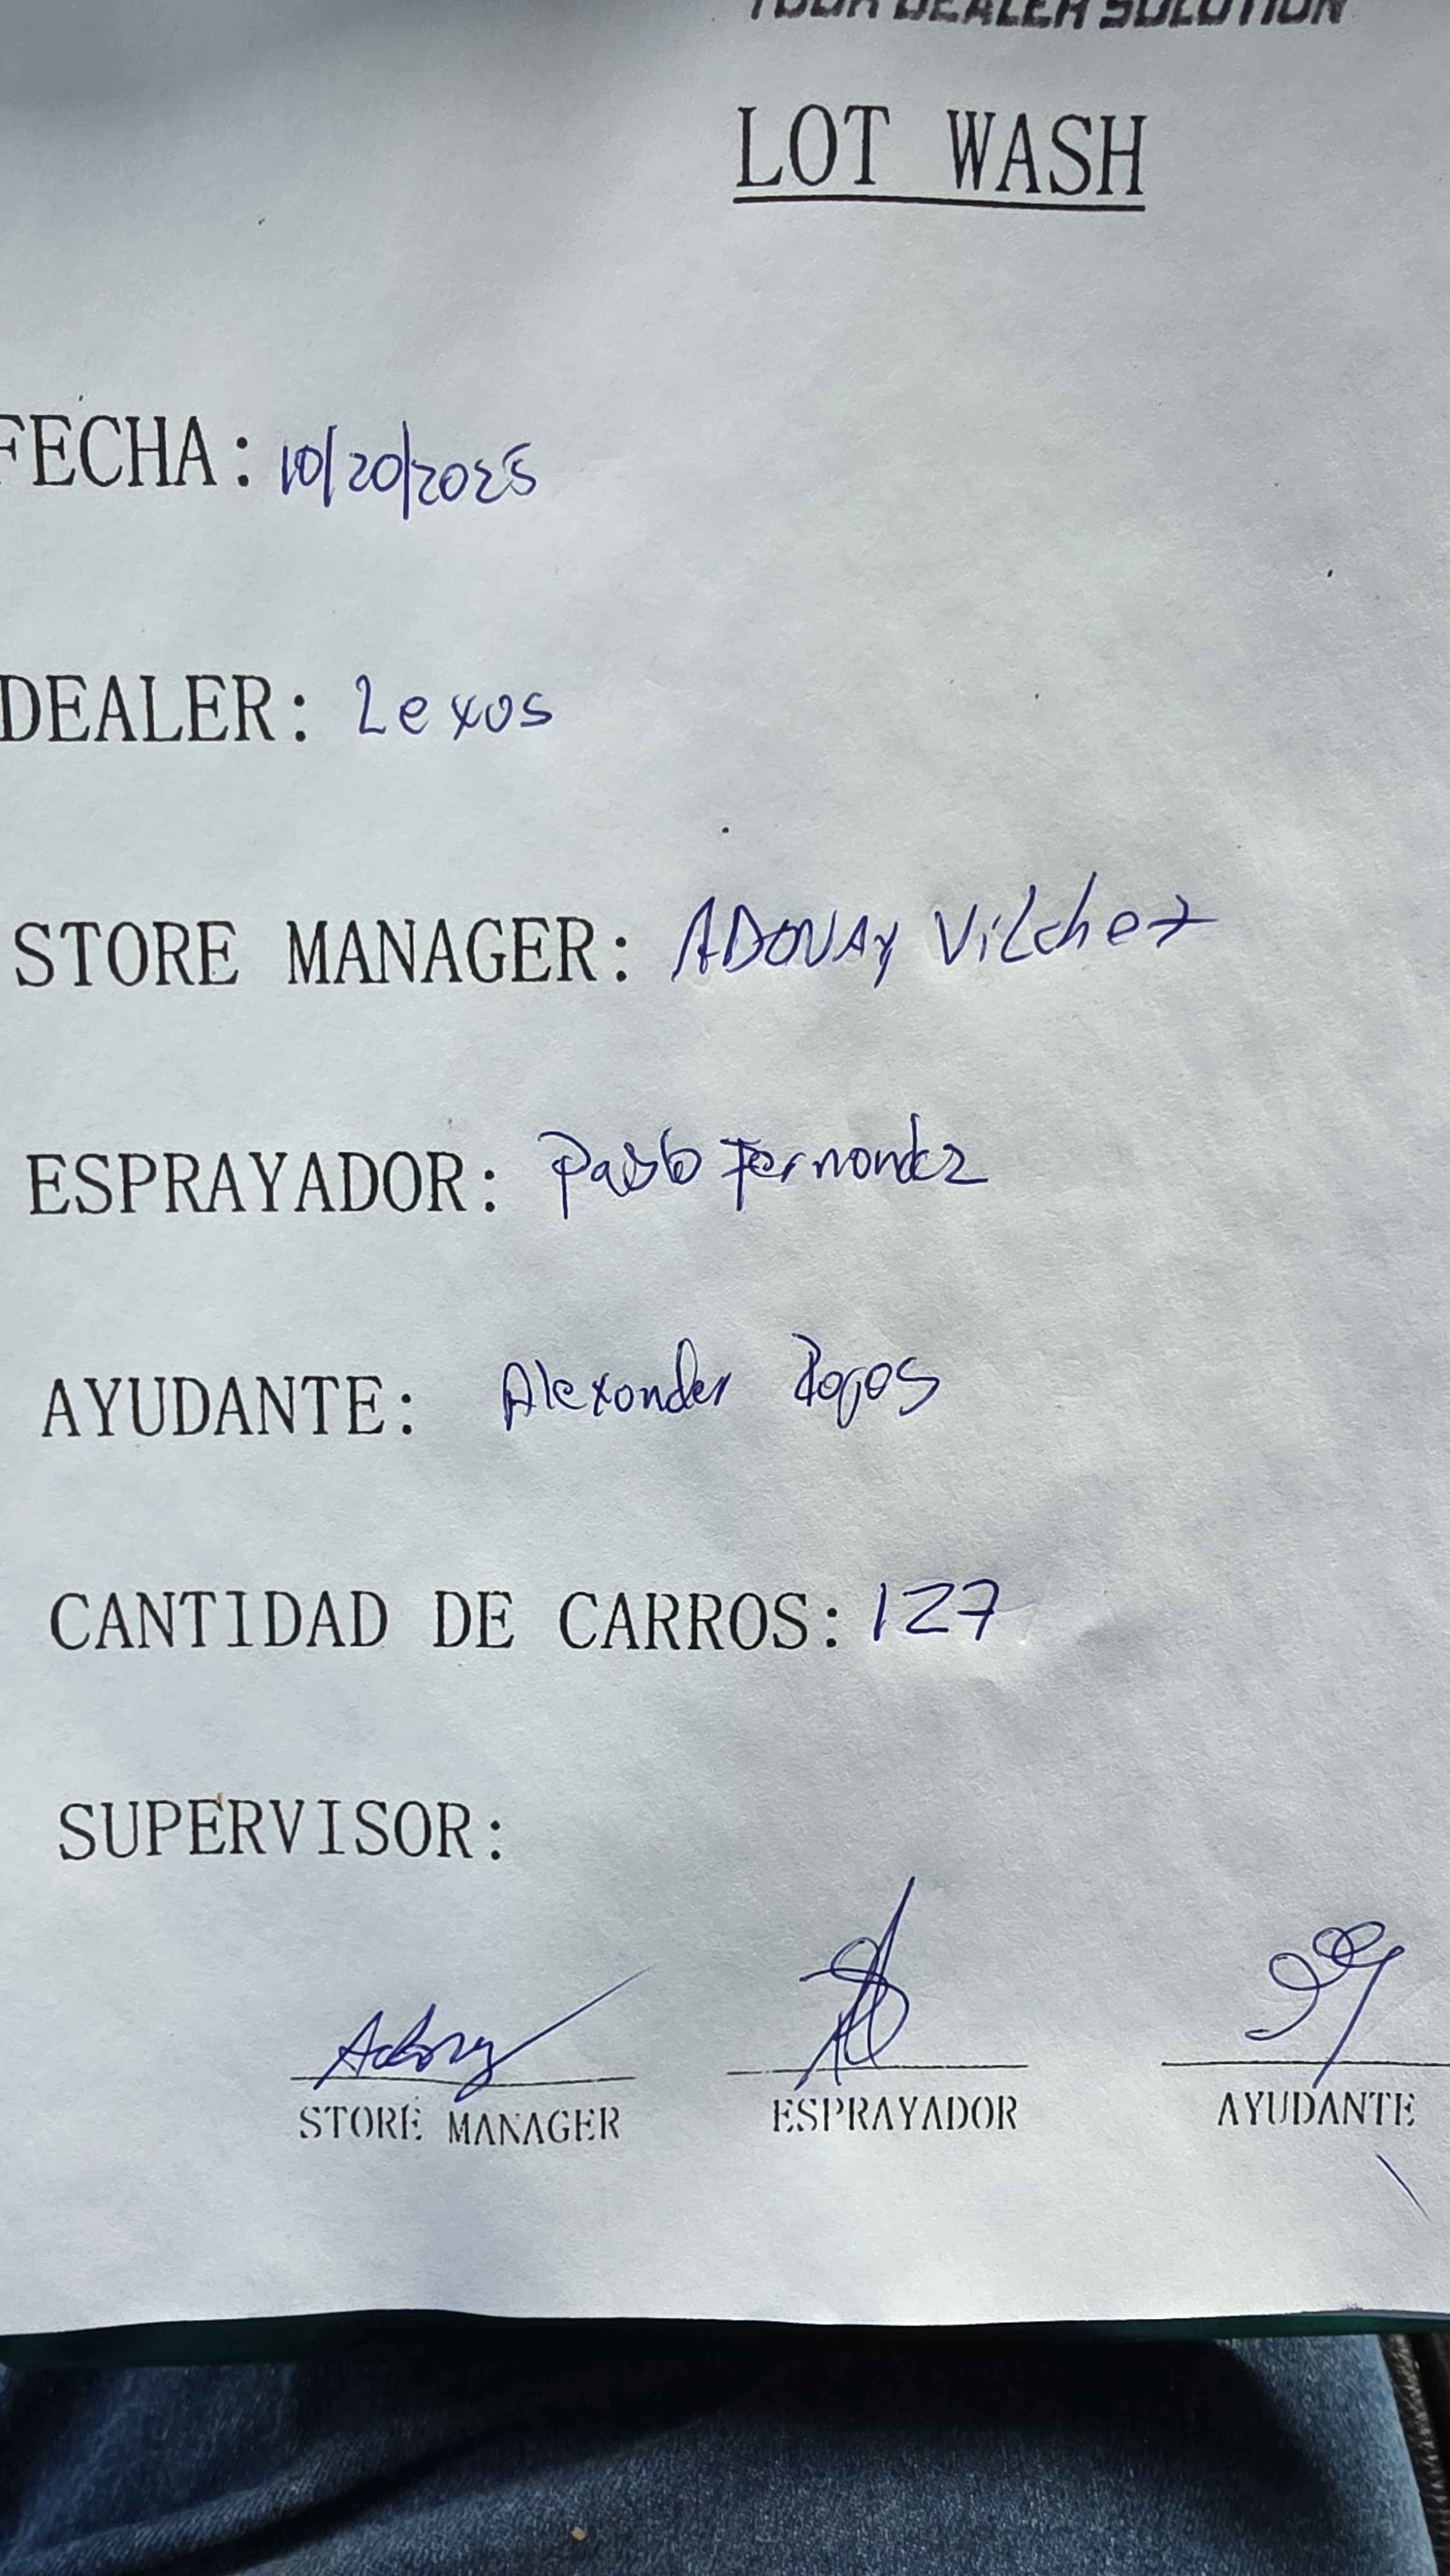 YOUR DEALER SOLUTION
LOT WASH
FECHA: 10/20/2025
DEALER: Lexos
STORE MANAGER: ADONAY Vilchez
ESPRAYADOR: Pablo Fernandez
AYUDANTE: Alexander Rojas
CANTIDAD DE CARROS: 127
SUPERVISOR:
Adonay
STORE MANAGER ESPRAYADOR AYUDANTE